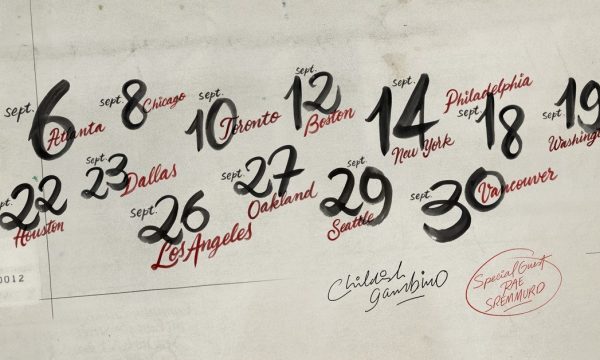 sept. 6 Atlanta
sept. 8 Chicago
sept. 10 Toronto
sept. 12 Boston
sept. 14 New York
Philadelphia sept. 18
19
sept. 22 Houston
sept. 23 Dallas
sept. 26 Los Angeles
sept. 27 Oakland
sept. 29 Seattle
sept. 30 Vancouver
0012
Childish
gambino
Special Guest
RAE
SREMMURD